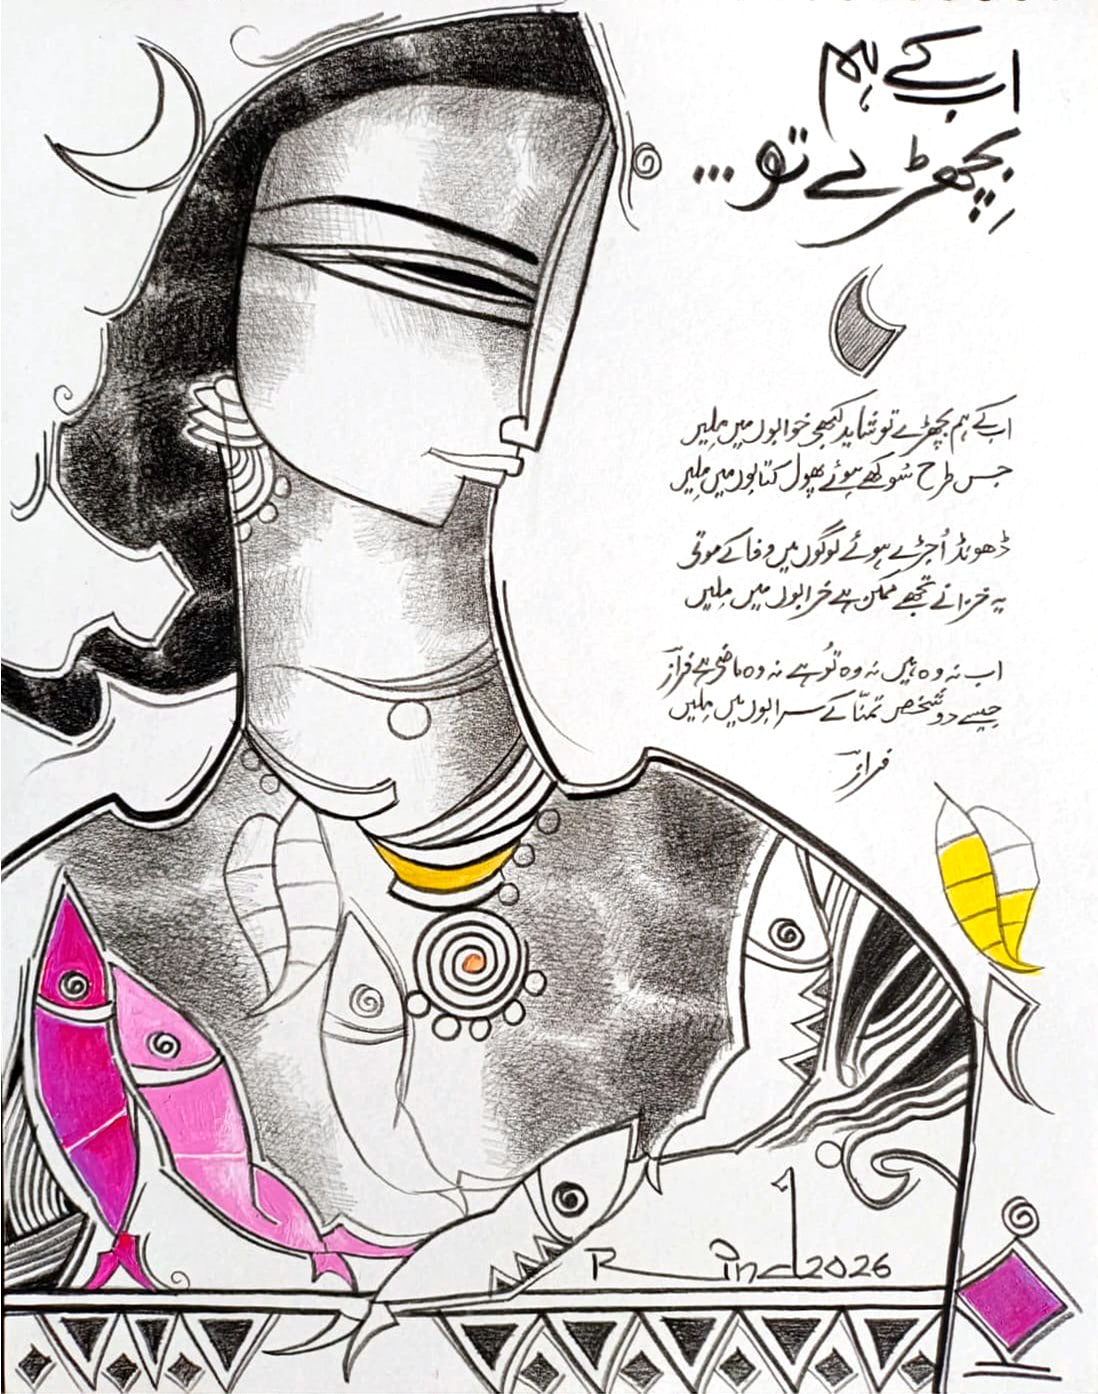 اب کے ہم
بچھڑے تو ...
اب کے ہم بچھڑے تو شاید کبھی خوابوں میں مِلیں
جس طرح سُوکھے ہوئے پھول کتابوں میں مِلیں
ڈھونڈ اُجڑے ہوئے لوگوں میں وفا کے موتی
یہ خزانے تجھے ممکن ہے خرابوں میں مِلیں
اب نہ وہ ہیں نہ وہ تُو ہے نہ وہ ماضی ہے فرازؔ
جیسے دو شخص تمنّا کے سرابوں میں مِلیں
فرازؔ
R ind 2026